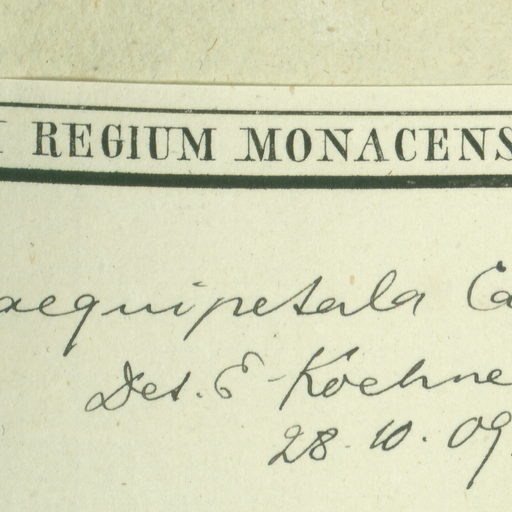 REGIUM MONACENS
aequipetala Ca
Det. E. Koehne
28. 10. 09.